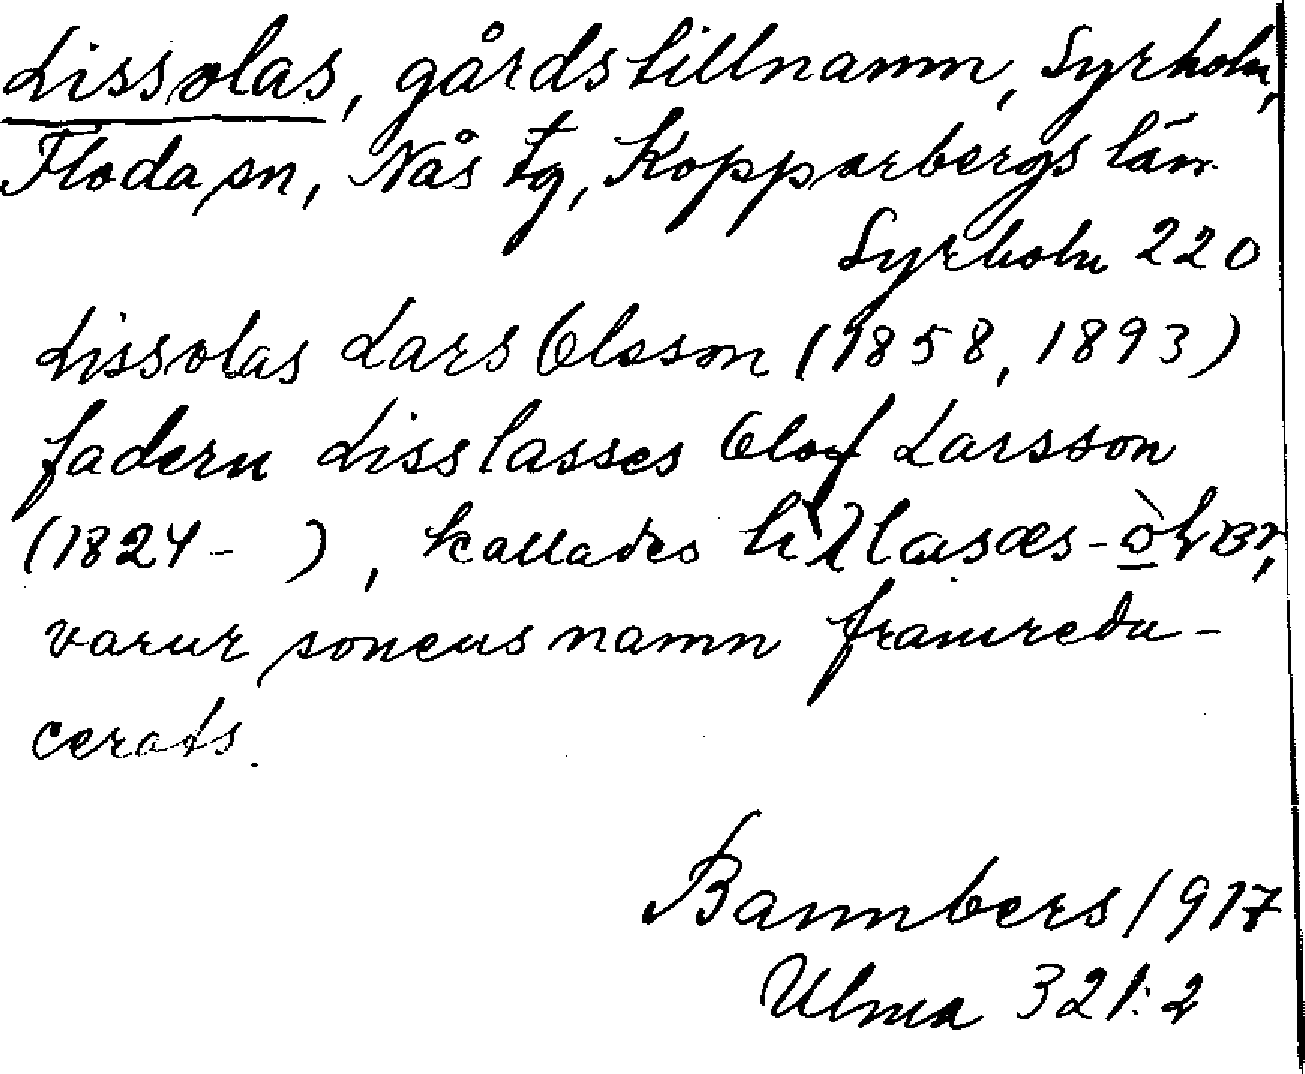 Lissolas, gårdstillnamn, Syrholn,
Floda sn, Nås tg, Kopparbergs län
Syrholn 220
Lissolas Lars Olsson (1858, 1893)
fadern Liss lasses Olof Larsson
(1824- ), kallades
varur sonens namn framredu-
cerats.
Bannbers 1917
Ulma 321:2